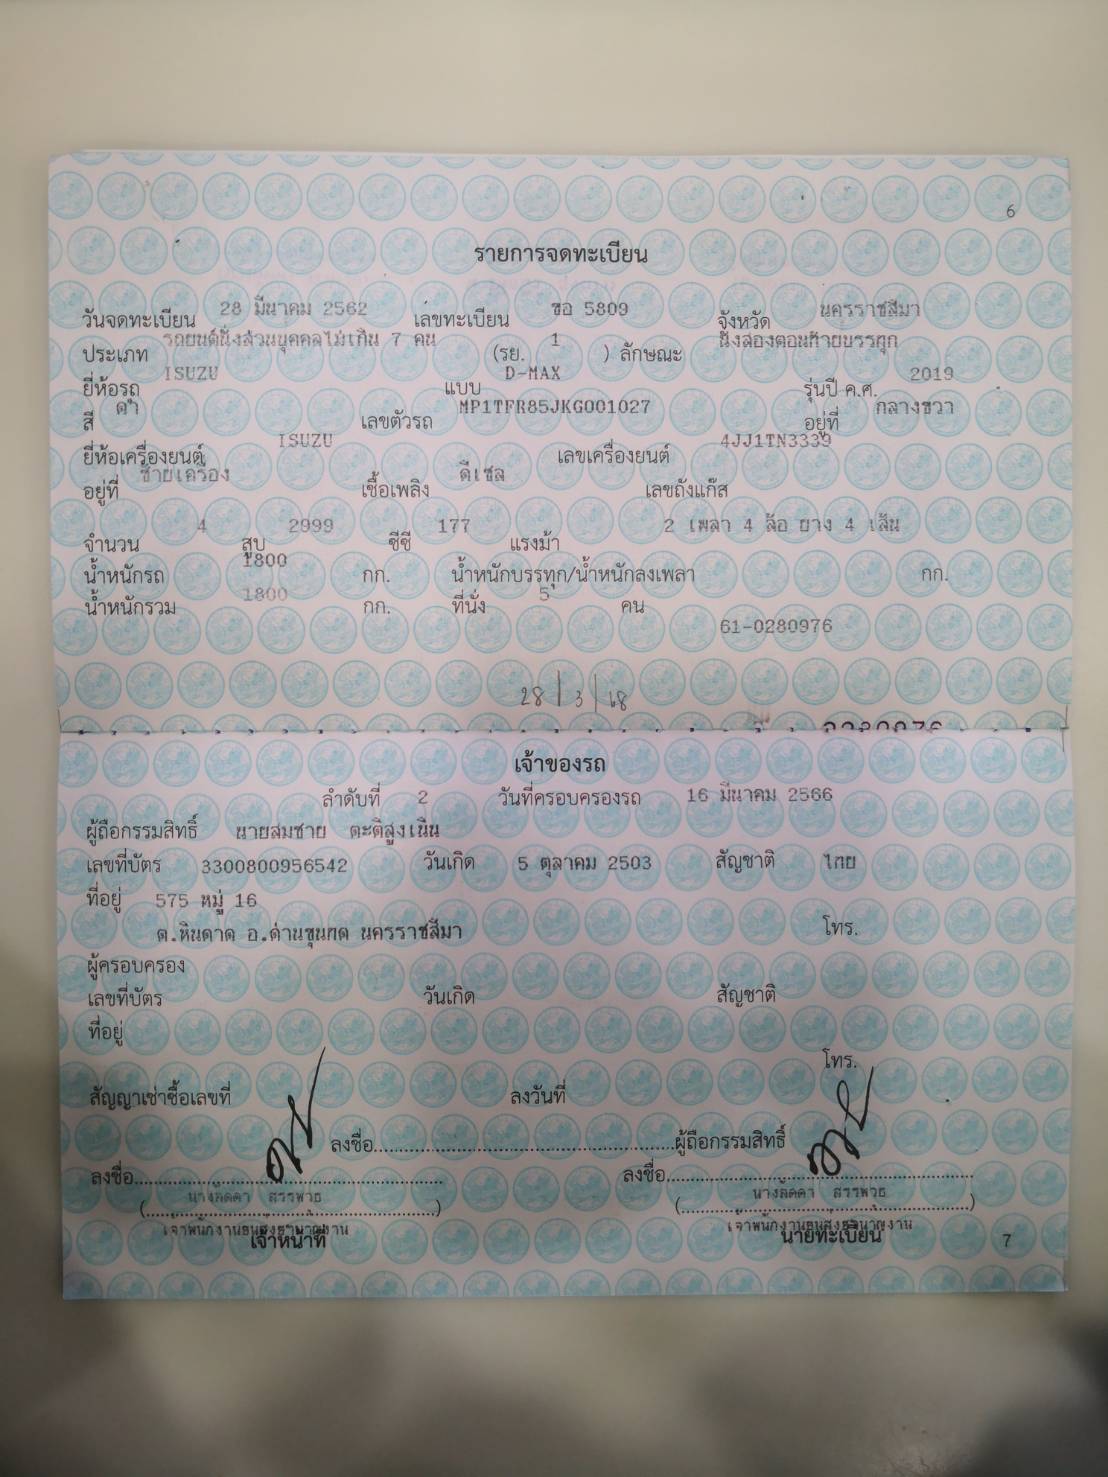 6
รายการจดทะเบียน
วันจดทะเบียน 28 มีนาคม 2562 เลขทะเบียน ขอ 5809 จังหวัด นครราชสีมา
ประเภท รถยนต์นั่งส่วนบุคคลไม่เกิน 7 คน (รย. 1 ) ลักษณะ นั่งสองตอนท้ายบรรทุก
ยี่ห้อรถ ISUZU แบบ D-MAX รุ่นปี ค.ศ. 2019
สี ดำ เลขตัวรถ MP1TFR85JKG001027 อยู่ที่ กลางขวา
ยี่ห้อเครื่องยนต์ ISUZU เลขเครื่องยนต์ 4JJ1TN3339
อยู่ที่ ซ้ายเครื่อง เชื้อเพลิง ดีเซล เลขถังแก๊ส
จำนวน 4 สูบ 2999 ซีซี 177 แรงม้า 2 เพลา 4 ล้อ ยาง 4 เส้น
น้ำหนักรถ 1800 กก. น้ำหนักบรรทุก/น้ำหนักลงเพลา กก.
น้ำหนักรวม 1800 กก. ที่นั่ง 5 คน
61-0280976
28 / 3 / 68
เจ้าของรถ
ลำดับที่ 2 วันที่ครอบครองรถ 16 มีนาคม 2566
ผู้ถือกรรมสิทธิ์ นายสมชาย ตะติสูงเนิน
เลขที่บัตร 3300800956542 วันเกิด 5 ตุลาคม 2503 สัญชาติ ไทย
ที่อยู่ 575 หมู่ 16
ต.หินดาด อ.ด่านขุนทด นครราชสีมา โทร.
ผู้ครอบครอง
เลขที่บัตร วันเกิด สัญชาติ
ที่อยู่
โทร.
สัญญาเช่าซื้อเลขที่ ลงวันที่
ลงชื่อ ผู้ถือกรรมสิทธิ์
ลงชื่อ ลงชื่อ
(นางลัดดา) (นางลัดดา)
เจ้าพนักงานขนส่งชำนาญงาน เจ้าพนักงานขนส่งชำนาญงาน
เจ้าหน้าที่ นายทะเบียน
7